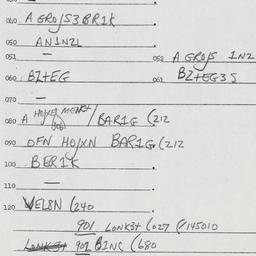 040 A GRO/S3 BR1K
050 AN1NZL
051 — 052 A GRO/S 1NZ
060 BZ+EG 061 BZ+EG3S
070 —
080 A HO/XN / BAR1G (212
090 OFN HO/XN BAR1G (212
100 BER1K
110 —
120 VEL8N (240
901 LONK3+ (027 (/145010
901 B1NS (680